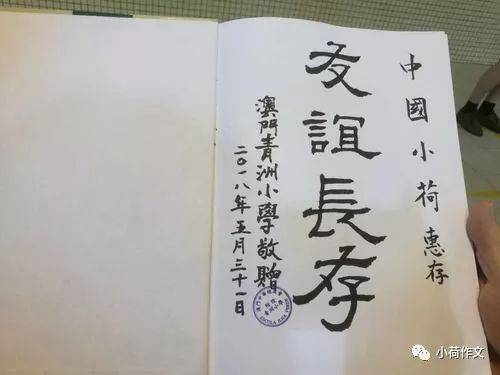 中國小荷 惠存
友誼長存
澳門青洲小學敬贈
二〇一八年五月三十一日
小荷作文